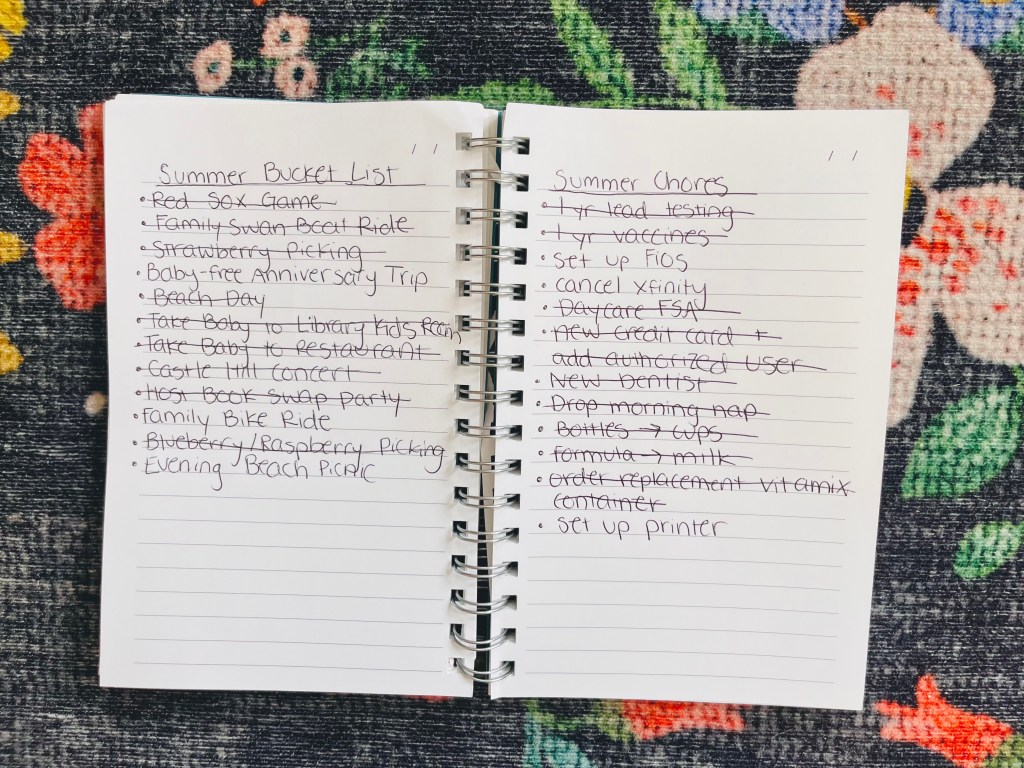 / /
Summer Bucket List
• Red Sox Game
• Family Swan Boat Ride
• Strawberry Picking
• Baby-free Anniversary Trip
• Beach Day
• Take Baby to Library Kids Room
• Take Baby to Restaurant
• Castle Hill Concert
• Host Book Swap Party
• Family Bike Ride
• Blueberry/Raspberry Picking
• Evening Beach Picnic
/ /
Summer Chores
• 1 yr lead testing
• 1 yr vaccines
• set up FiOS
• cancel xfinity
• Daycare FSA
• new credit card +
add authorized user
• New Dentist
• Drop morning nap
• Bottles → cups
• formula → milk
• order replacement vitamix
container
• set up printer